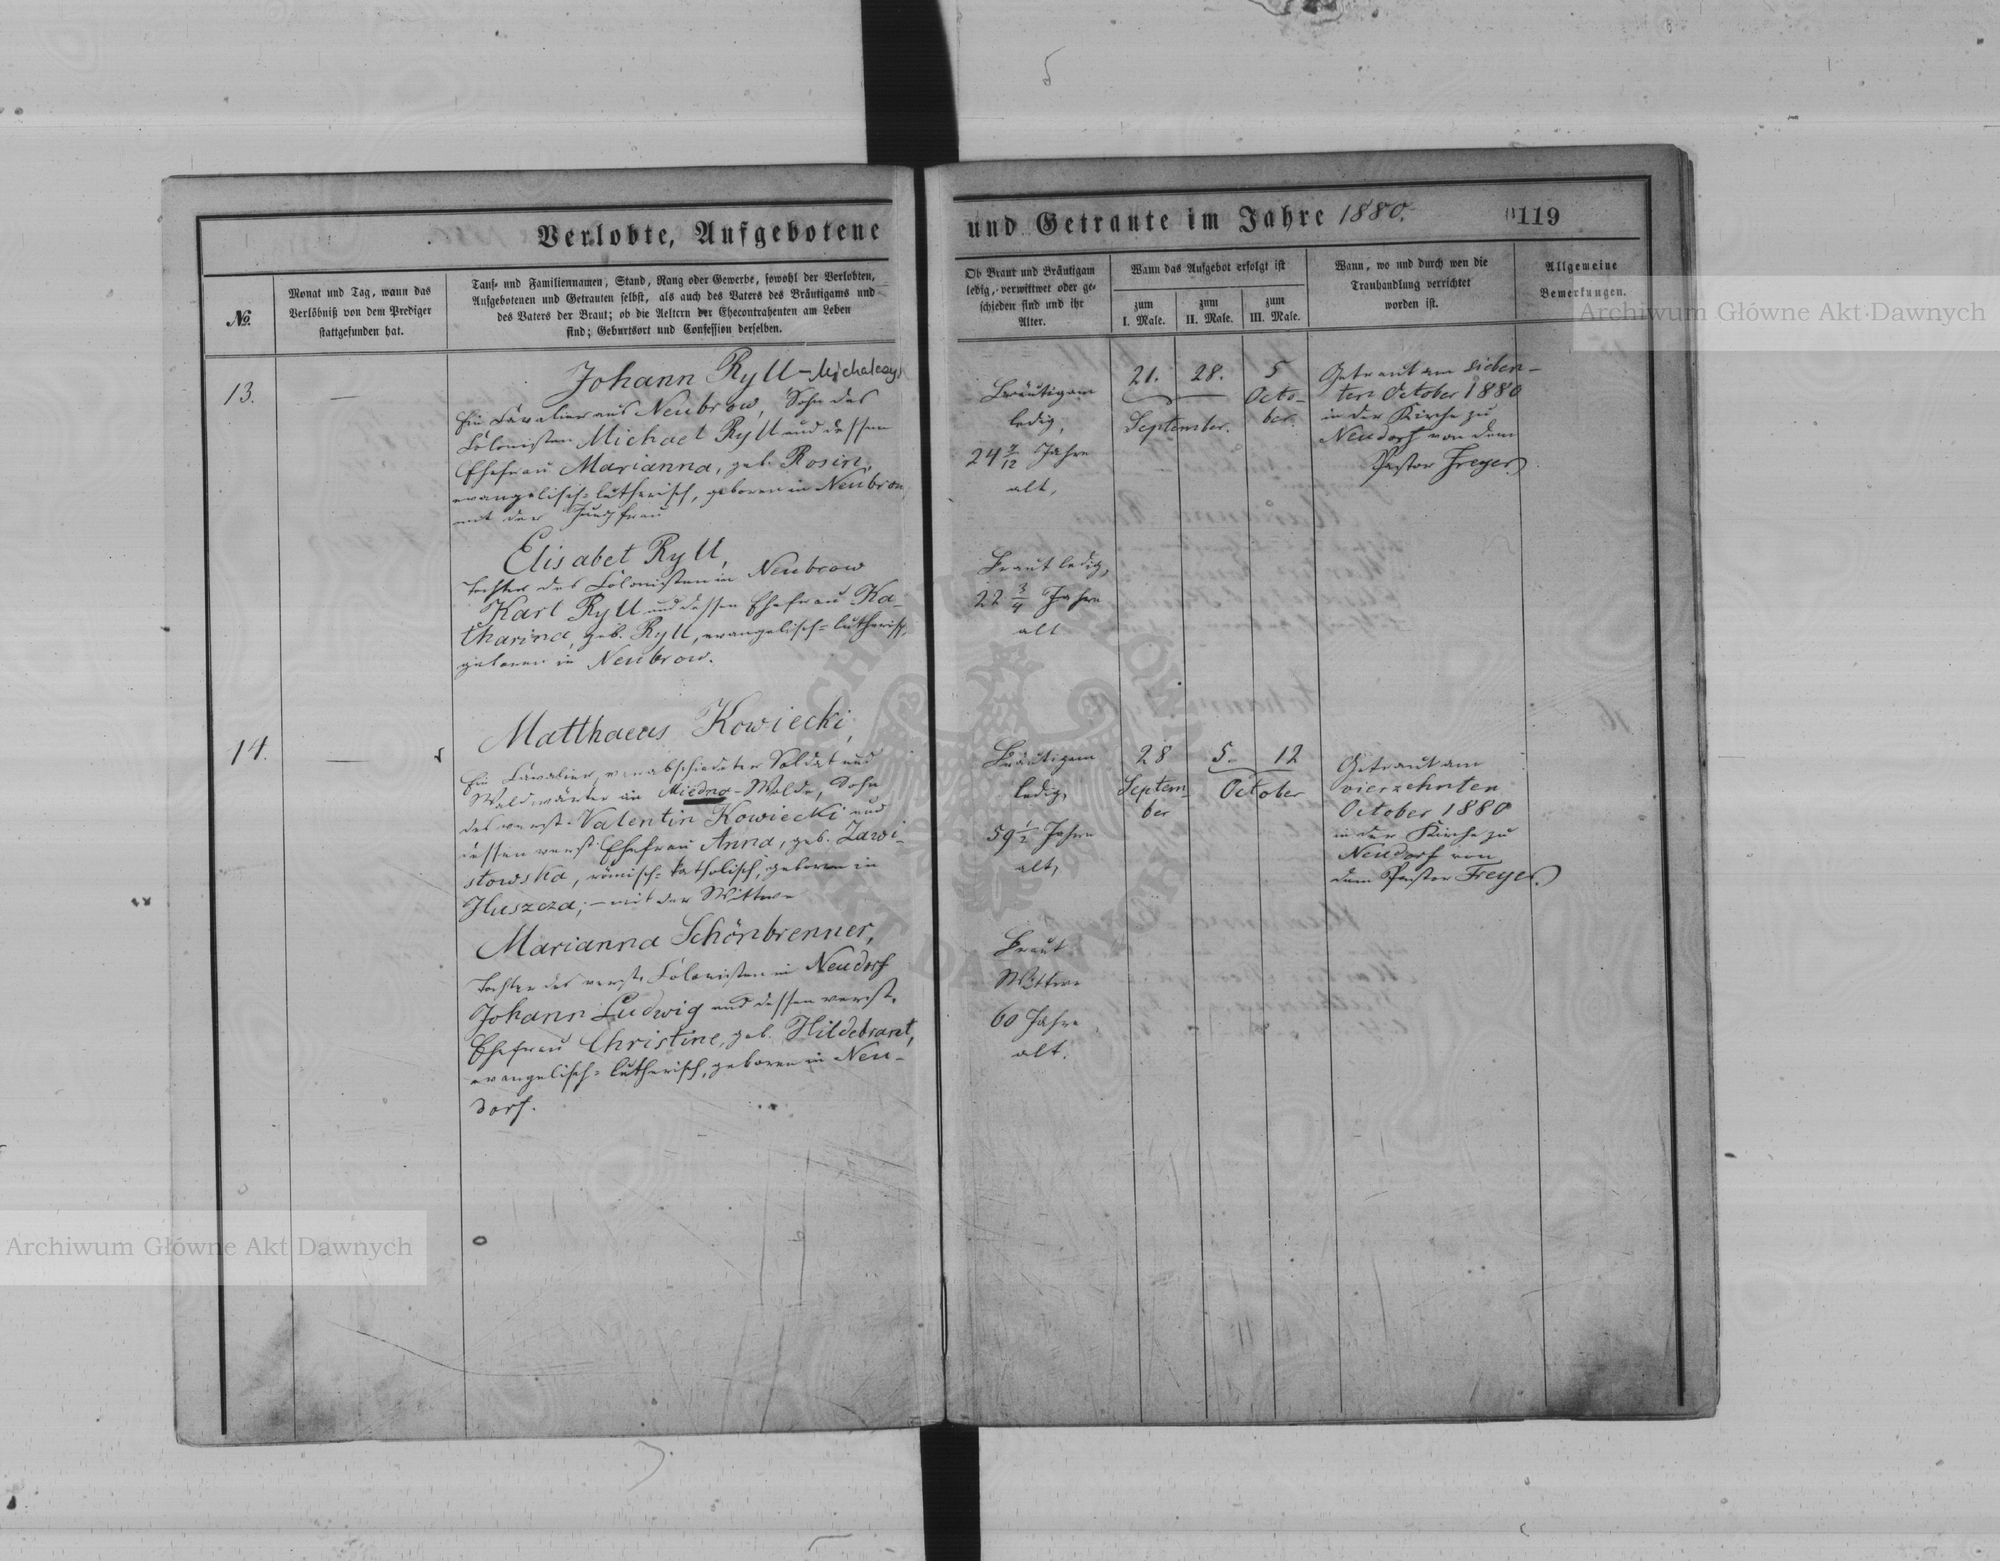 Verlobte, Aufgebotene und Getraute im Jahre 1880.
119
№.
Monat und Tag, wann das
Verlöbniß von dem Prediger
stattgefunden hat.
Tauf- und Familiennamen, Stand, Rang oder Gewerbe, sowohl der Verlobten,
Aufgebotenen und Getrauten selbst, als auch des Vaters des Bräutigams und
des Vaters der Braut; ob die Aeltern der Ehecontrahenten am Leben
sind; Geburtsort und Confession derselben.
Ob Braut und Bräutigam
ledig, verwittwet oder ge-
schieden sind und ihr
Alter.
Wann das Aufgebot erfolgt ist
zum
I. Male.
zum
II. Male.
zum
III. Male.
Wann, wo und durch wen die
Trauhandlung verrichtet
worden ist.
Allgemeine
Bemerkungen.
13.
—
Johann Ryll - Michalczyk
Ein Cavalier aus Neubrow, Sohn des
Colonisten Michael Ryll und dessen
Ehefrau Marianna, geb. Rosin,
evangelisch-lutherisch, geboren in Neubrow
mit der Jungfrau
Elisabet Ryll,
Tochter des Colonisten in Neubrow
Karl Ryll und dessen Ehefrau Ka-
tharina, geb. Ryll, evangelisch-lutherisch,
geboren in Neubrow.
Bräutigam
ledig,
24 Jahre
alt,
Braut ledig,
22 3/4 Jahre
alt
21. 28.
September.
5
Octo-
ber.
Getraut am sieben-
ten October 1880
in der Kirche zu
Neudorf von dem
Pastor Freyer.
14.
—
Matthaeus Kowiecki,
Ein Cavalier, verabschiedeter Soldat und
Waldwärter im Miedno-Walde, Sohn
des verst. Valentin Kowiecki und
dessen verst. Ehefrau Anna, geb. Zawi-
stowska, römisch-katholisch, geboren in
Huszcza; — mit der Wittwe
Marianna Schönbrenner,
Tochter des verst. Colonisten in Neudorf
Johann Ludwig und dessen verst.
Ehefrau Christine, geb. Hildebrant,
evangelisch-lutherisch, geboren in Neu-
dorf.
Bräutigam
ledig,
59 1/2 Jahre
alt,
Braut
Wittwe
60 Jahre
alt.
28
Septem-
ber
5. 12
October
Getraut am
vierzehnten
October 1880
in der Kirche zu
Neudorf von
dem Pastor Freyer.
Archiwum Główne Akt Dawnych
Archiwum Główne Akt Dawnych
ARCHIWUM GŁÓWNE AKT DAWNYCH